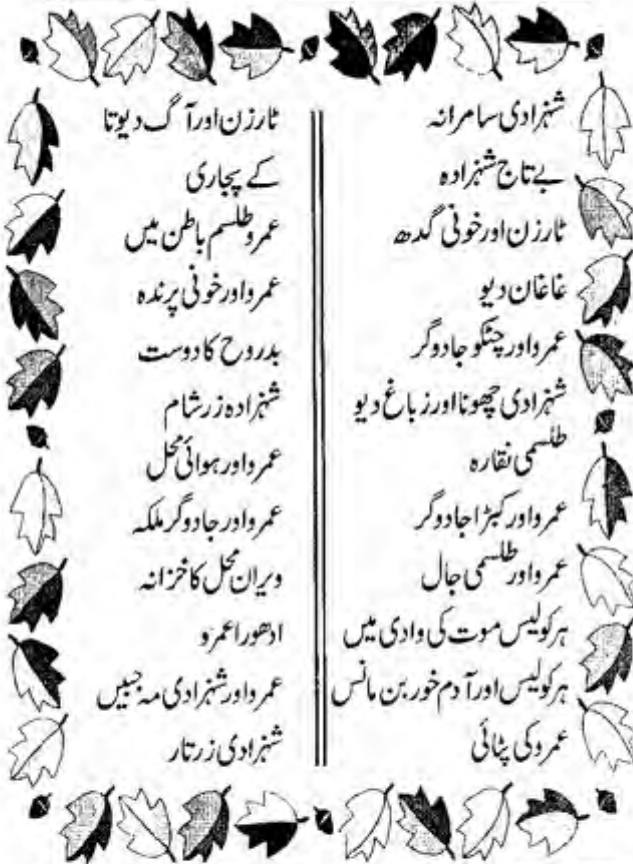 شہزادی سامرانہ
بے تاج شہزادہ
ٹارزن اور خونی گدھ
غاغان دیو
عمرو اور چٹکو جادوگر
شہزادی چھونا اور زباغ دیو
طلسمی نقارہ
عمرو اور کبڑا جادوگر
عمرو اور طلسمی جال
ہرکولیس موت کی وادی میں
ہرکولیس اور آدم خور بن مانس
عمرو کی پٹائی
ٹارزن اور آگ دیوتا
کے پجاری
عمرو طلسم باطن میں
عمرو اور خونی پرندہ
بدروح کا دوست
شہزادہ زرشام
عمرو اور ہوائی محل
عمرو اور جادوگر ملکہ
ویران محل کا خزانہ
ادھورا عمرو
عمرو اور شہزادی مہ جبیں
شہزادی زرتار